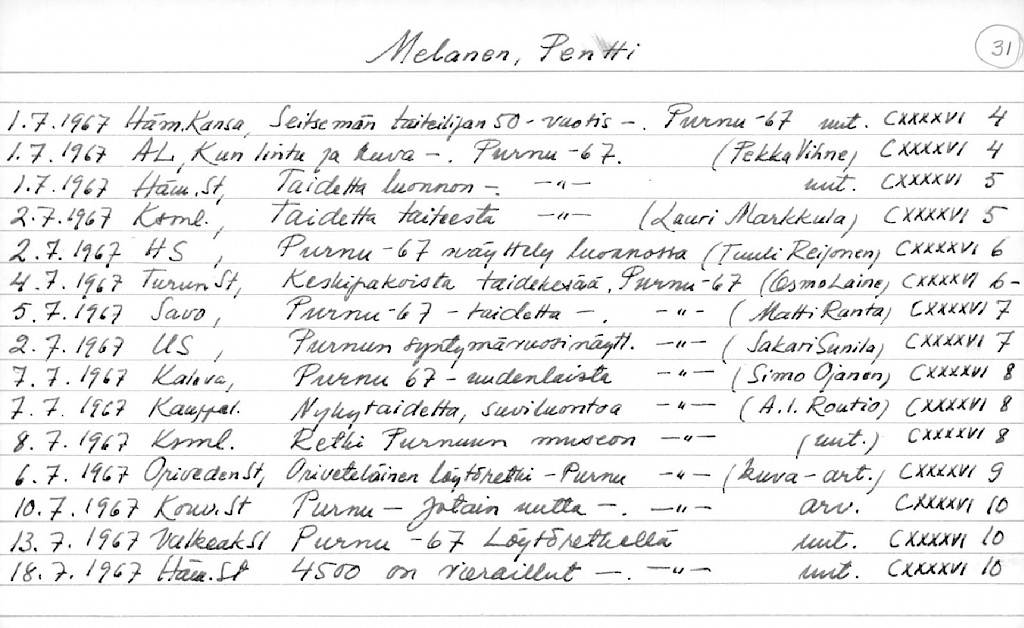 Melanen, Pentti
31
1.7.1967 Häm.Kansa, Seitsemän taiteilijan 50-vuotis -. Purnu-67 uut. CXXXXVI 4
1.7.1967 AL, Kun lintu ja kuva -. Purnu-67. (Pekka Vihne) CXXXXVI 4
1.7.1967 Häm.St, Taidetta luonnon -. -"- uut. CXXXXVI 5
2.7.1967 Ksml., Taidetta taiteesta -"- (Lauri Markkula) CXXXXVI 5
2.7.1967 HS, Purnu-67 näyttely luonnossa (Tuuli Reijonen) CXXXXVI 6
4.7.1967 Turun St, Keskipakoista taidekesää, Purnu-67 (Osmo Laine) CXXXXVI 6-
5.7.1967 Savo, Purnu-67 - taidetta -. -"- (Matti Ranta) CXXXXVI 7
2.7.1967 US, Purnun syntymävuosinäytt. -"- (Sakari Sunila) CXXXXVI 7
7.7.1967 Kaleva, Purnu 67 - uudenlaista -"- (Simo Ojanen) CXXXXVI 8
7.7.1967 Kauppal. Nykytaidetta, suviluontoa -"- (A.I. Routio) CXXXXVI 8
8.7.1967 Ksml. Retki Purnuun museon -"- (uut.) CXXXXVI 8
6.7.1967 OrivedenSt, Oriveteläinen löytöretki - Purnu -"- (kuva-art.) CXXXXVI 9
10.7.1967 Kouv.St Purnu - Jotain uutta -. -"- arv. CXXXXVI 10
13.7.1967 ValkeakSt Purnu -67 Löytöretkellä uut. CXXXXVI 10
18.7.1967 Häm.St 4500 on vieraillut -. -"- uut. CXXXXVI 10